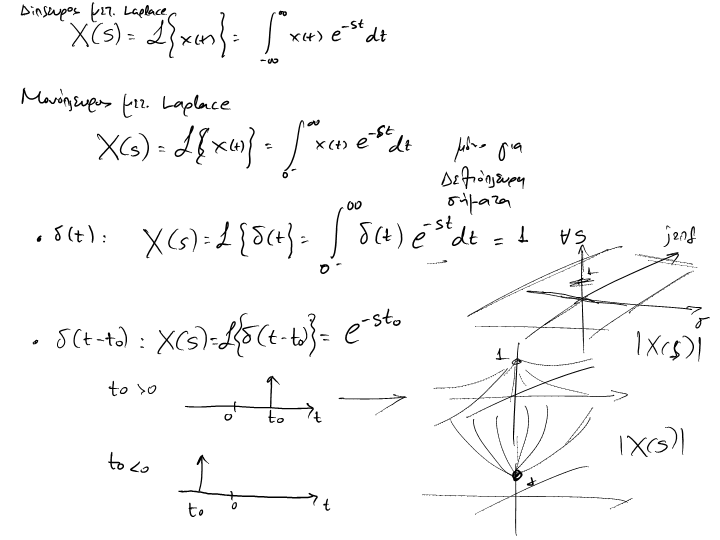 Δίπλευρος μετ. Laplace
X(s) = ℒ{x(t)} = ∫_{-∞}^{∞} x(t) e^{-st} dt
Μονόπλευρος μετ. Laplace
X(s) = ℒ{x(t)} = ∫_{0^-}^{∞} x(t) e^{-st} dt
μόνο για
Δεξιόπλευρα
σήματα
• δ(t) : X(s) = ℒ{δ(t)} = ∫_{0^-}^{∞} δ(t) e^{-st} dt = 1 ∀s
j2πf
1
σ
|X(s)|
• δ(t-t₀) : X(s) = ℒ{δ(t-t₀)} = e^{-st₀}
1
t₀ > 0
0 t₀ t
|X(s)|
t₀ < 0
1
t₀ 0 t